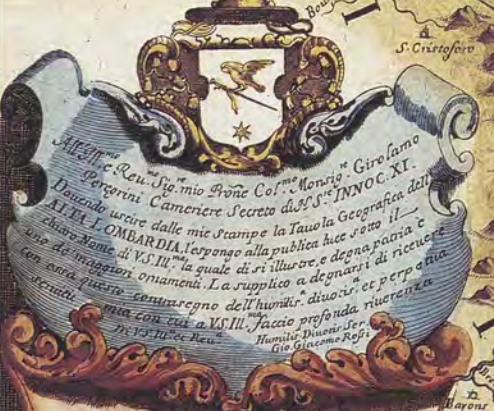 Bou
S. Cristoforo
All Ill.mo e Reu.mo Sig.re mio Prōne Col.mo Monsig.re Girolamo
Peregrini Cameriere Secreto di N. S.re INNOC. XI.
Douendo uscire dalle mie Stampe la Tauola Geografica dell'
ALTA LOMBARDIA, l'espongo alla publica luce sotto il
chiaro Nome di V.S.Ill.ma la quale di si illustre, e degna patria è
uno de maggiori ornamenti. La supplico a degnarsi di riceuere
con essa questo contrasegno dell'humilis.a diuotis.a et perpetua
seruitù mia con cui a V.S.Ill.ma faccio profonda riuerenza
Di V.S.Ill.ma et Reu.ma
Humilis. Diuotis. Ser.
Gio. Giacomo Rossi
Bayons